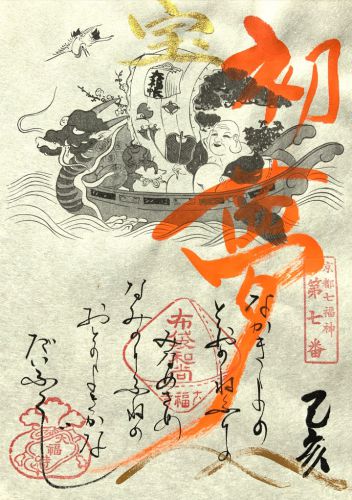 宝
初夢
京都七福神
第七番
己亥
なかきよの
とおのねふりの
みなめさめ
なみのりふねの
おとのよきかな
だいふくじ
布袋和尚
福